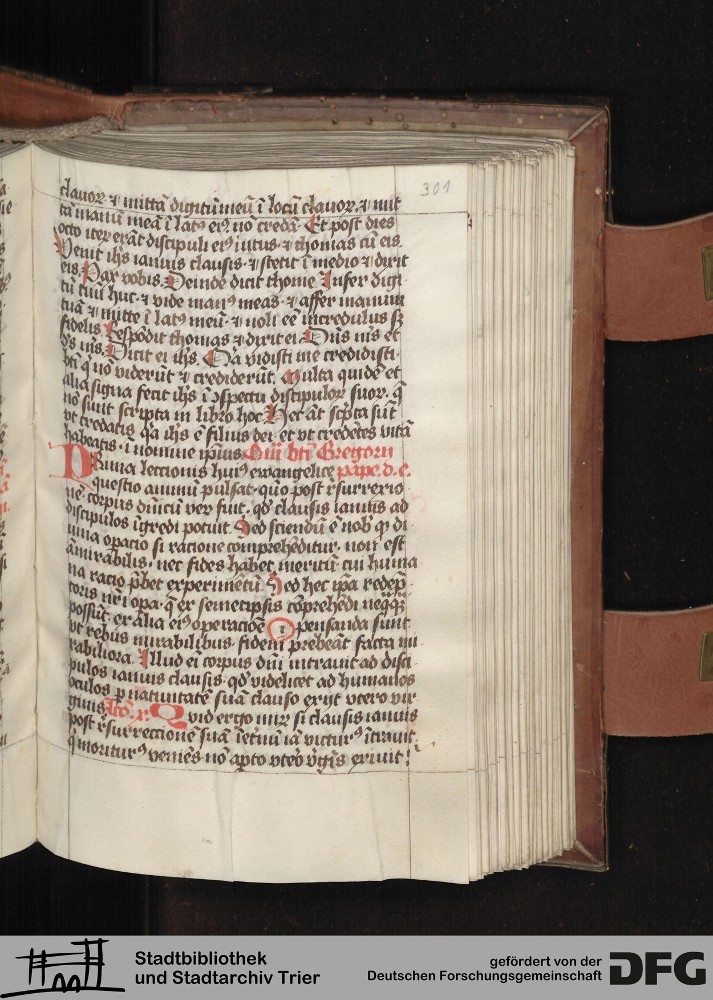 301
clauoꝝ ⁊ mittā digitū meū ī locū clauoꝝ ⁊ mit
tā manū meā ī latꝰ eiꝰ nō credā Et post dies
octo iteꝝ erāt discipuli eiꝰ intus ⁊ thomas cū eis
Venit ihs ianuis clausis ⁊ stetit ī medio ⁊ dixit
eis Pax vobis Deinde dicit thome Infer digi
tū tuū huc ⁊ vide manꝰ meas ⁊ affer manum
tuā ⁊ mitte ī latꝰ meū ⁊ noli eē incredulus sꝫ
fidelis Respōdit thomas ⁊ dixit ei Dn̄s m̄s et
dꝰs m̄s Dicit ei ihs Q̄a vidisti me credidisti
bt̄i q̇ nō viderūt ⁊ crediderūt Multa quidē et
alia signa fecit ihs ī ↄspectu discipuloꝝ suoꝝ q̄
nō sunt scripta in libro hoc Hec āt sc̄pta sūt
vt credatis q̄a ihs ē filius dei et vt credētes vitā
habeatis ī nomine ip̄ius Om̄l bt̄i Gregorii
PRima lectionis huiꝰ ewangelice pape d. e.
questio animū pulsat quō post r̄surrexio
nē corpus dn̄icū veꝝ fuit qd̓ clausis ianuis ad
discipulos īgredi potuit Sed sciendū ē nob̓ q̓ di
uina op̄acio si racione comprehēditur non est
āmirabilis nec fides habet meritū cui huma
na racio p̄bet experimētū Sed hec ip̄a redēp
toris nr̄i op̄a q̄ ex semetipsis cōprehēdi neq̄q̄ꝫ
possūt ex alia eiꝰ operacioē pensanda sunt
vt rebus mirabilibus fidem prebeāt facta mi
rabiliora Illud ei corpus dn̄i intrauit ad disci
pulos ianuis clausis qd̓ videlicet ad humanos
oculos p̲ natiuitatē suā clauso exijt vtero vir
ginis Lc̄o. x. Quid ergo miꝝ si clausis ianuis
post r̄surrectionē suā ī et̄nū iā victurꝰ ītrauit
q̇ moriturꝰ veniēs nō ap̄to vt̄o v̓gīs exiuit
Stadtbibliothek
und Stadtarchiv Trier
gefördert von der
Deutschen Forschungsgemeinschaft
DFG